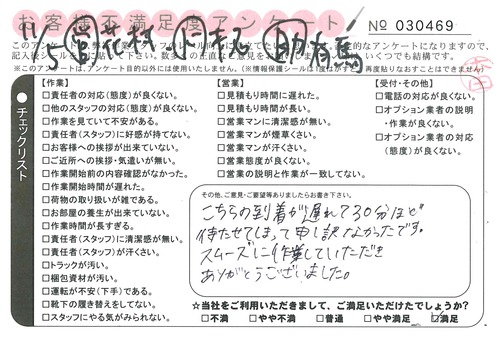 お客様不満足度アンケート
No 030469
※このアンケートは、アンケート目的以外には使用いたしません。(※情報保護シールは1度はがすと、再度貼りなおすことはできません)
チェックリスト
【作業】
□責任者の対応(態度)が良くない。
□他のスタッフの対応(態度)が良くない。
□作業を見ていて不安がある。
□責任者(スタッフ)に好感が持てない。
□お客様への挨拶が出来ていない。
□ご近所への挨拶・気遣いが無い。
□作業開始前の内容確認がなかった。
□作業開始時間が遅れた。
□荷物の取り扱いが雑である。
□お部屋の養生が出来ていない。
□作業時間が長すぎる。
□責任者(スタッフ)に清潔感が無い。
□責任者(スタッフ)が汗くさい。
□トラックが汚い。
□梱包資材が汚い。
□運転が不安(下手)である。
□靴下の履き替えをしてない。
□スタッフにやる気がみられない。
【営業】
□見積もり時間に遅れた。
□見積もり時間が長い。
□営業マンに清潔感が無い。
□営業マンが煙草くさい。
□営業マンが汗くさい。
□営業態度が良くない。
□営業の説明と作業が一致してない。
【受付・その他】
□電話の対応が良くない。
□オプション業者の説明・作業が良くない。
□オプション業者の対応(態度)が良くない。
その他、ご意見・ご要望等ありましたらお書き下さい。
こちらの到着が遅れて30分ほど
待たせてしまって申し訳なかったです。
スムーズに作業していただき
ありがとうございました。
☆当社をご利用いただきまして、ご満足いただけたでしょうか?
□不満 □やや不満 □普通 □やや満足 ☑満足